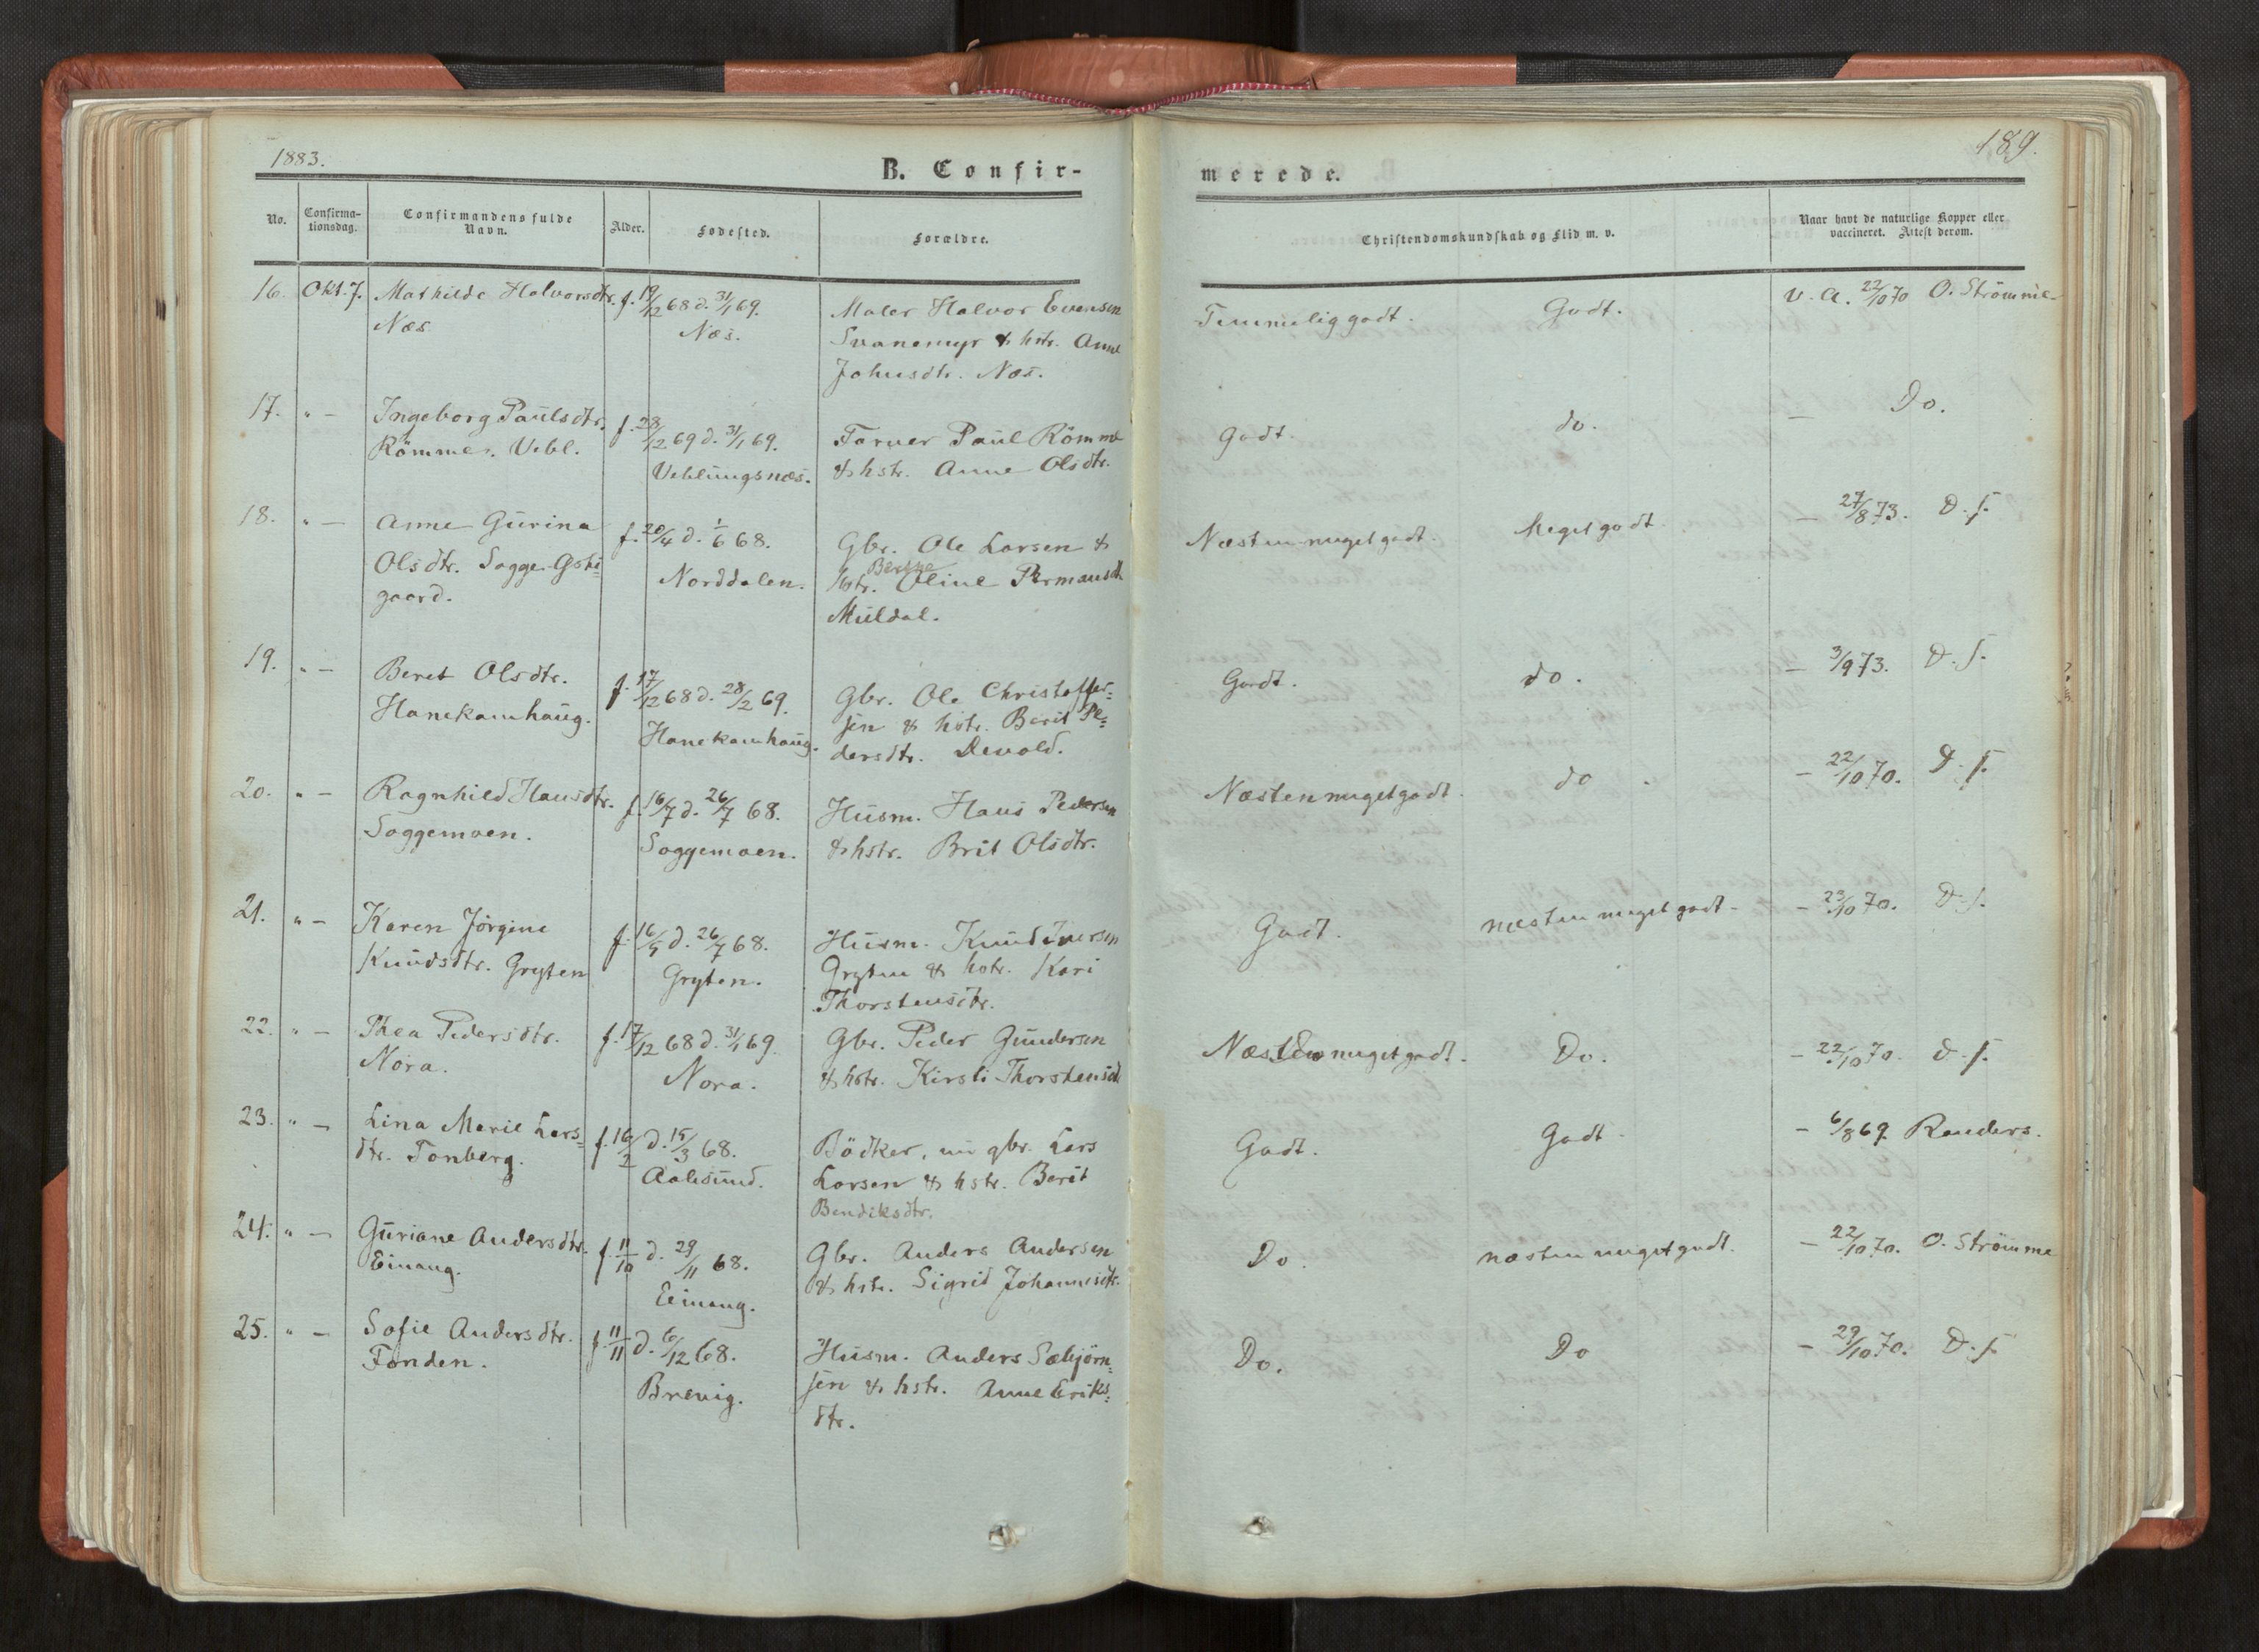 1883.
B. Confir-
No.
Confirma-
tionsdag.
Confirmandens fulde
Navn.
Alder.
Fødested.
Forældre.
16. Okt. 7. Mathilde Halvorsdtr. f. 19/12 68 d. 31/1 69. Maler Halvor Evensen
Næs. Næs. Svanemyr & hstr. Anne
Johnsdtr. Næs.
17. " — Ingeborg Paulsdtr. f. 28/12 69 d. 31/1 69. Farver Paul Römme
Römme. Vebl. Veblungsnæs. & hstr. Anne Olsdtr.
18. " — Anne Gurina f. 20/4 d. 1/6 68. Gbr. Ole Larsen &
Olsdtr. Sogge Norddalen. hstr. Berthe Oline
gaard. Muldal.
19. " — Beret Olsdtr. f. 17/12 68 d. 28/2 69. Gbr. Ole Christoffer=
Hanekamhaug. Hanekamhaug. sen & hstr. Berit Pe=
dersdtr. Devold.
20. " — Ragnhild Hansdtr. f. 16/7 d. 26/7 68. Husm. Hans Pedersen
Soggemoen. Soggemoen. & hstr. Brit Olsdtr.
21. " — Karen Jörgine f. 16/5 d. 26/7 68. Husm. Knud Iversen
Knudsdtr. Gryten Gryten. Gryten & hstr. Kari
Thorstensdtr.
22. " — Thea Pedersdtr. f. 17/12 68 d. 31/1 69. Gbr. Peder Gundersen
Nora. Nora. & hstr. Kirsti Thorstensd
23. " — Lina Marie Lars= f. 16/2 d. 15/3 68. Bödker, nu gbr. Lars
dtr. Tonberg. Aalesund. Larsen & hstr. Berit
Bendiksdtr.
24. " — Guriane Andersdtr. f. 11/10 d. 29/11 68. Gbr. Anders Andersen
Einang. Einang. & hstr. Sigrid Johannesdtr.
25. " — Sofie Andersdtr. f. 11/11 d. 6/12 68. Husm. Anders Sæbjörn=
Fonden. Brevig. sen & hstr. Anne Eriks=
dtr.
189.
merede.
Christendomskundskab og Flid m. v.
Naar havt de naturlige Kopper eller
vaccineret. Attest derom.
Temmelig godt. Godt. v. a. 22/10 70 O. Strömme
Godt. do. — Do.
Næsten meget godt. Meget godt. — 27/8 73. D. s.
Godt. do. — 3/9 73. D. s.
Næsten meget godt. do — 22/10 70. D. s.
Godt. næsten meget godt — 23/10 70. D. s.
Næsten meget godt. Do. — 22/10 70. d. s.
Godt. Godt — 6/8 69. Randers.
Do. næsten meget godt. — 22/10 70. O. Strömme
Do. Do — 29/10 70. D. s.